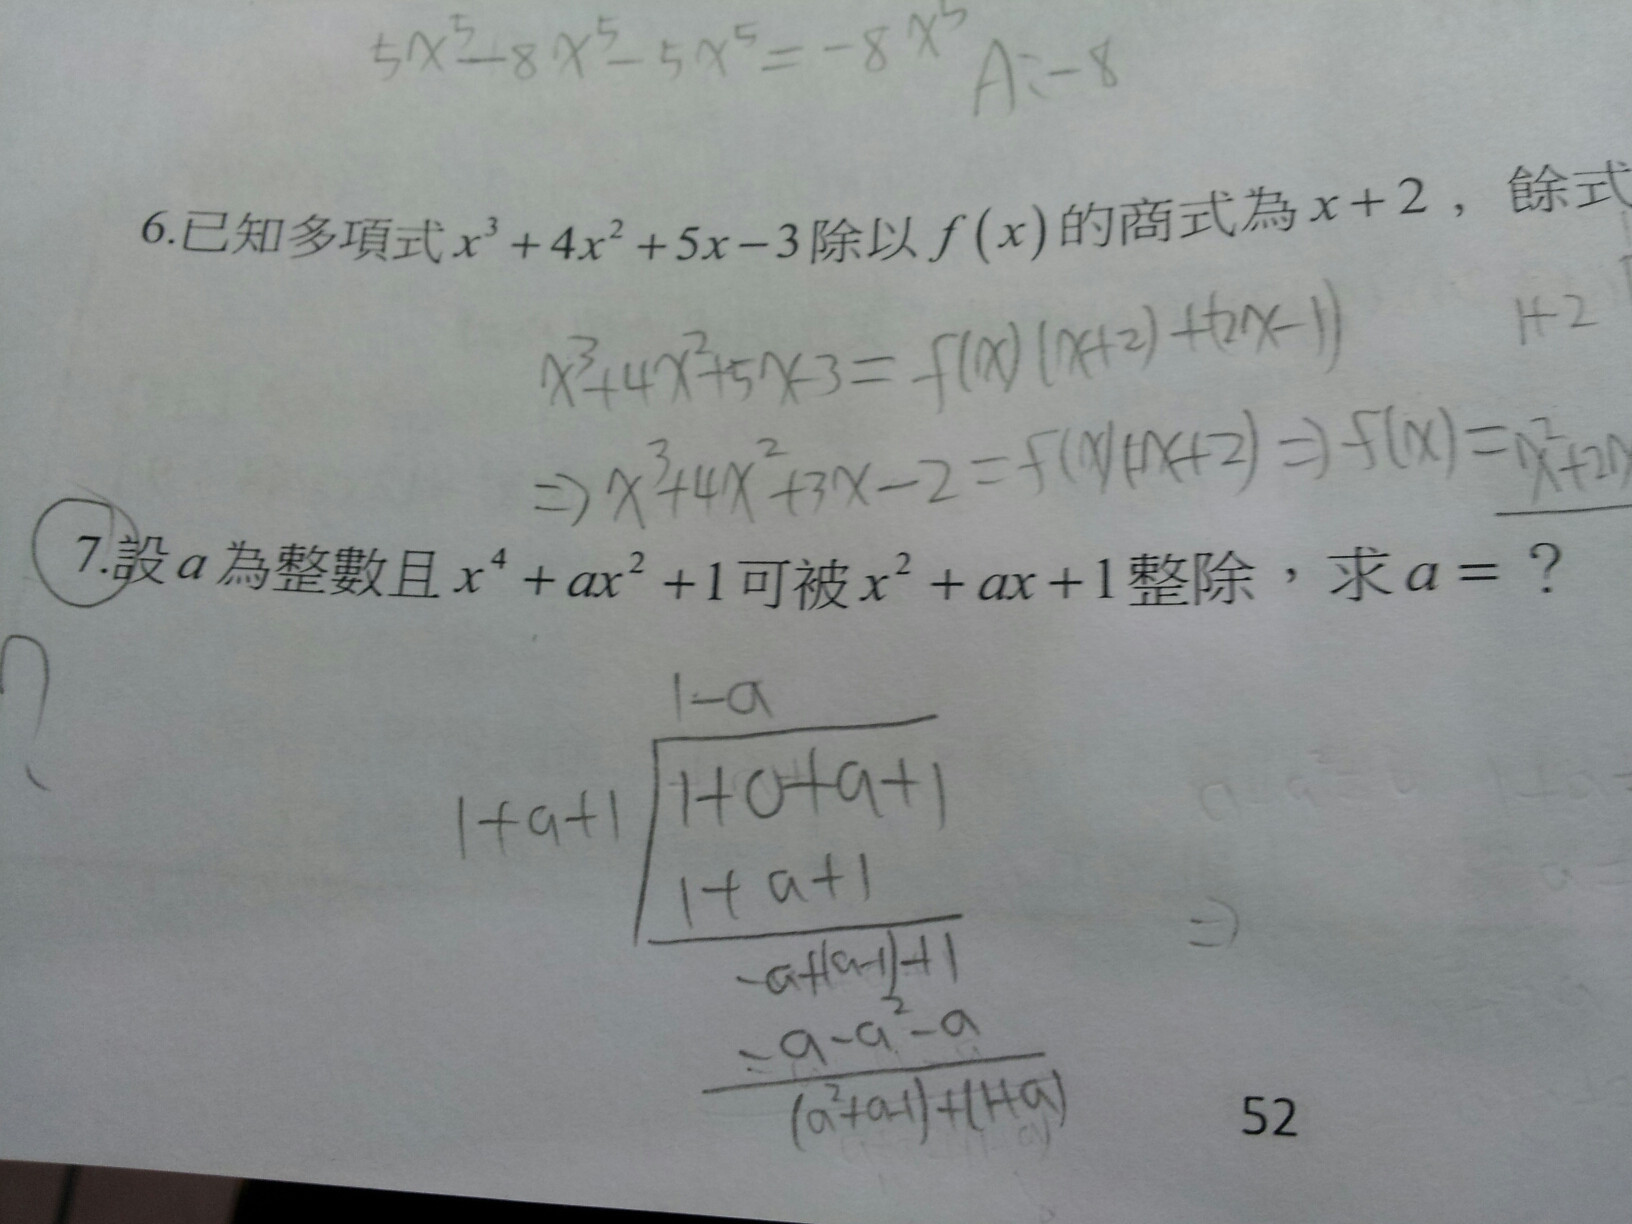 5x⁵-8x⁵-5x⁵=-8x⁵ A:-8
6.已知多項式 x³+4x²+5x-3 除以 f(x) 的商式為 x+2，餘式
x³+4x²+5x-3=f(x)(x+2)+(2x-1)
1+2
⇒x³+4x²+3x-2=f(x)(x+2)⇒f(x)=x²+2x
7.設 a 為整數且 x⁴+ax²+1 可被 x²+ax+1 整除，求 a=？
?
1-a
1+a+1 1+0+a+1
1+a+1
⇒
-a+(a-1)+1
-a-a²-a
(a²+a-1)+(1+a)
52